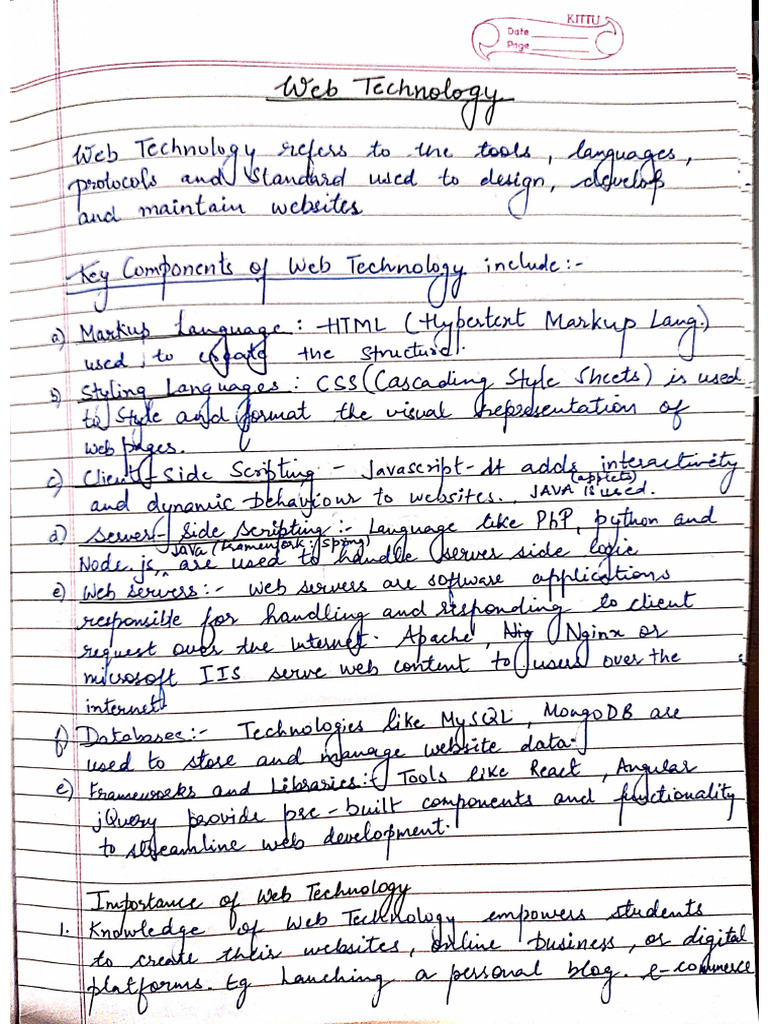 KITTU
Date
Page
Web Technology
Web Technology refers to the tools, languages,
protocols and standard used to design, develop
and maintain websites
Key Components of Web Technology include:-
a) Markup Language: HTML (Hypertext Markup Lang.)
used to create the structure.
b) Styling Languages: CSS (Cascading Style Sheets) is used
to style and format the visual representation of
web pages.
c) Client-Side Scripting - Javascript-It adds interactivity
(applets)
and dynamic behaviour to websites. JAVA is used.
d) Server-Side Scripting:- Language like PhP, python and
JAVA (framework: spring)
Node.js, are used to handle server side logic
e) Web servers:- Web servers are software applications
responsible for handling and responding to client
request over the internet. Apache, Nig Nginx or
microsoft IIS serve web content to users over the
internet
f) Databases:- Technologies like MySQL, MongoDB are
used to store and manage website data.
e) Frameworks and Libraries:- Tools like React, Angular
jQuery provide pre-built components and functionality
to streamline web development.
Importance of Web Technology
1. Knowledge of Web Technology empowers students
to create their websites, online business, or digital
platforms. Eg Lanching a personal blog. e-commerce